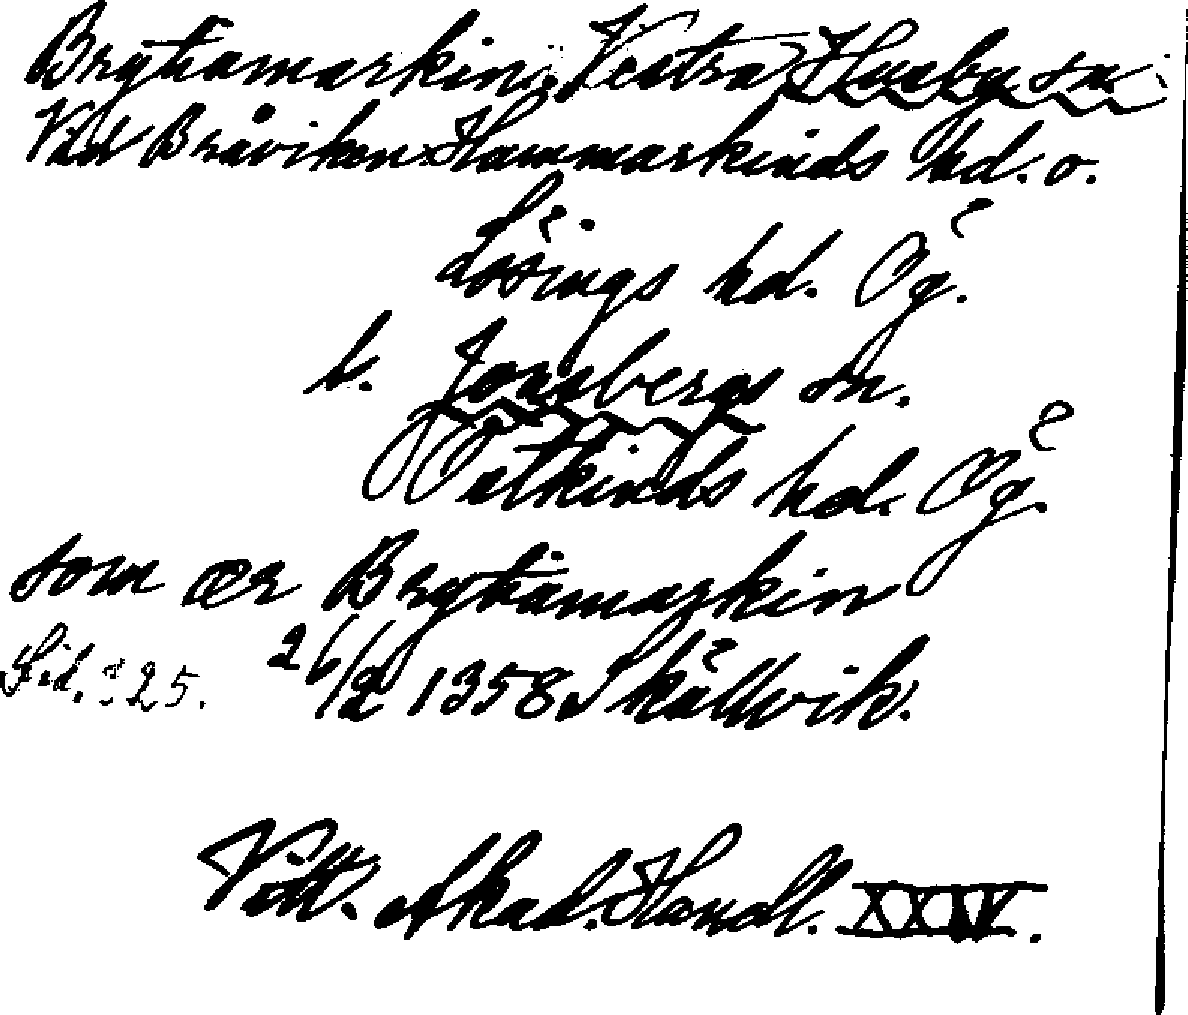 Brytiamarkin, Vestra Husby sn.
Vid Bråviken Hammarkinds hd. o.
Lösings hd. Ög.
t. Jonsbergs sn.
Östkinds hd. Ög.
som ær Brytiamarkin
Sid. 325. 26/2 1358 Skällvik.
Vitt. Akad. Handl. XXIV.